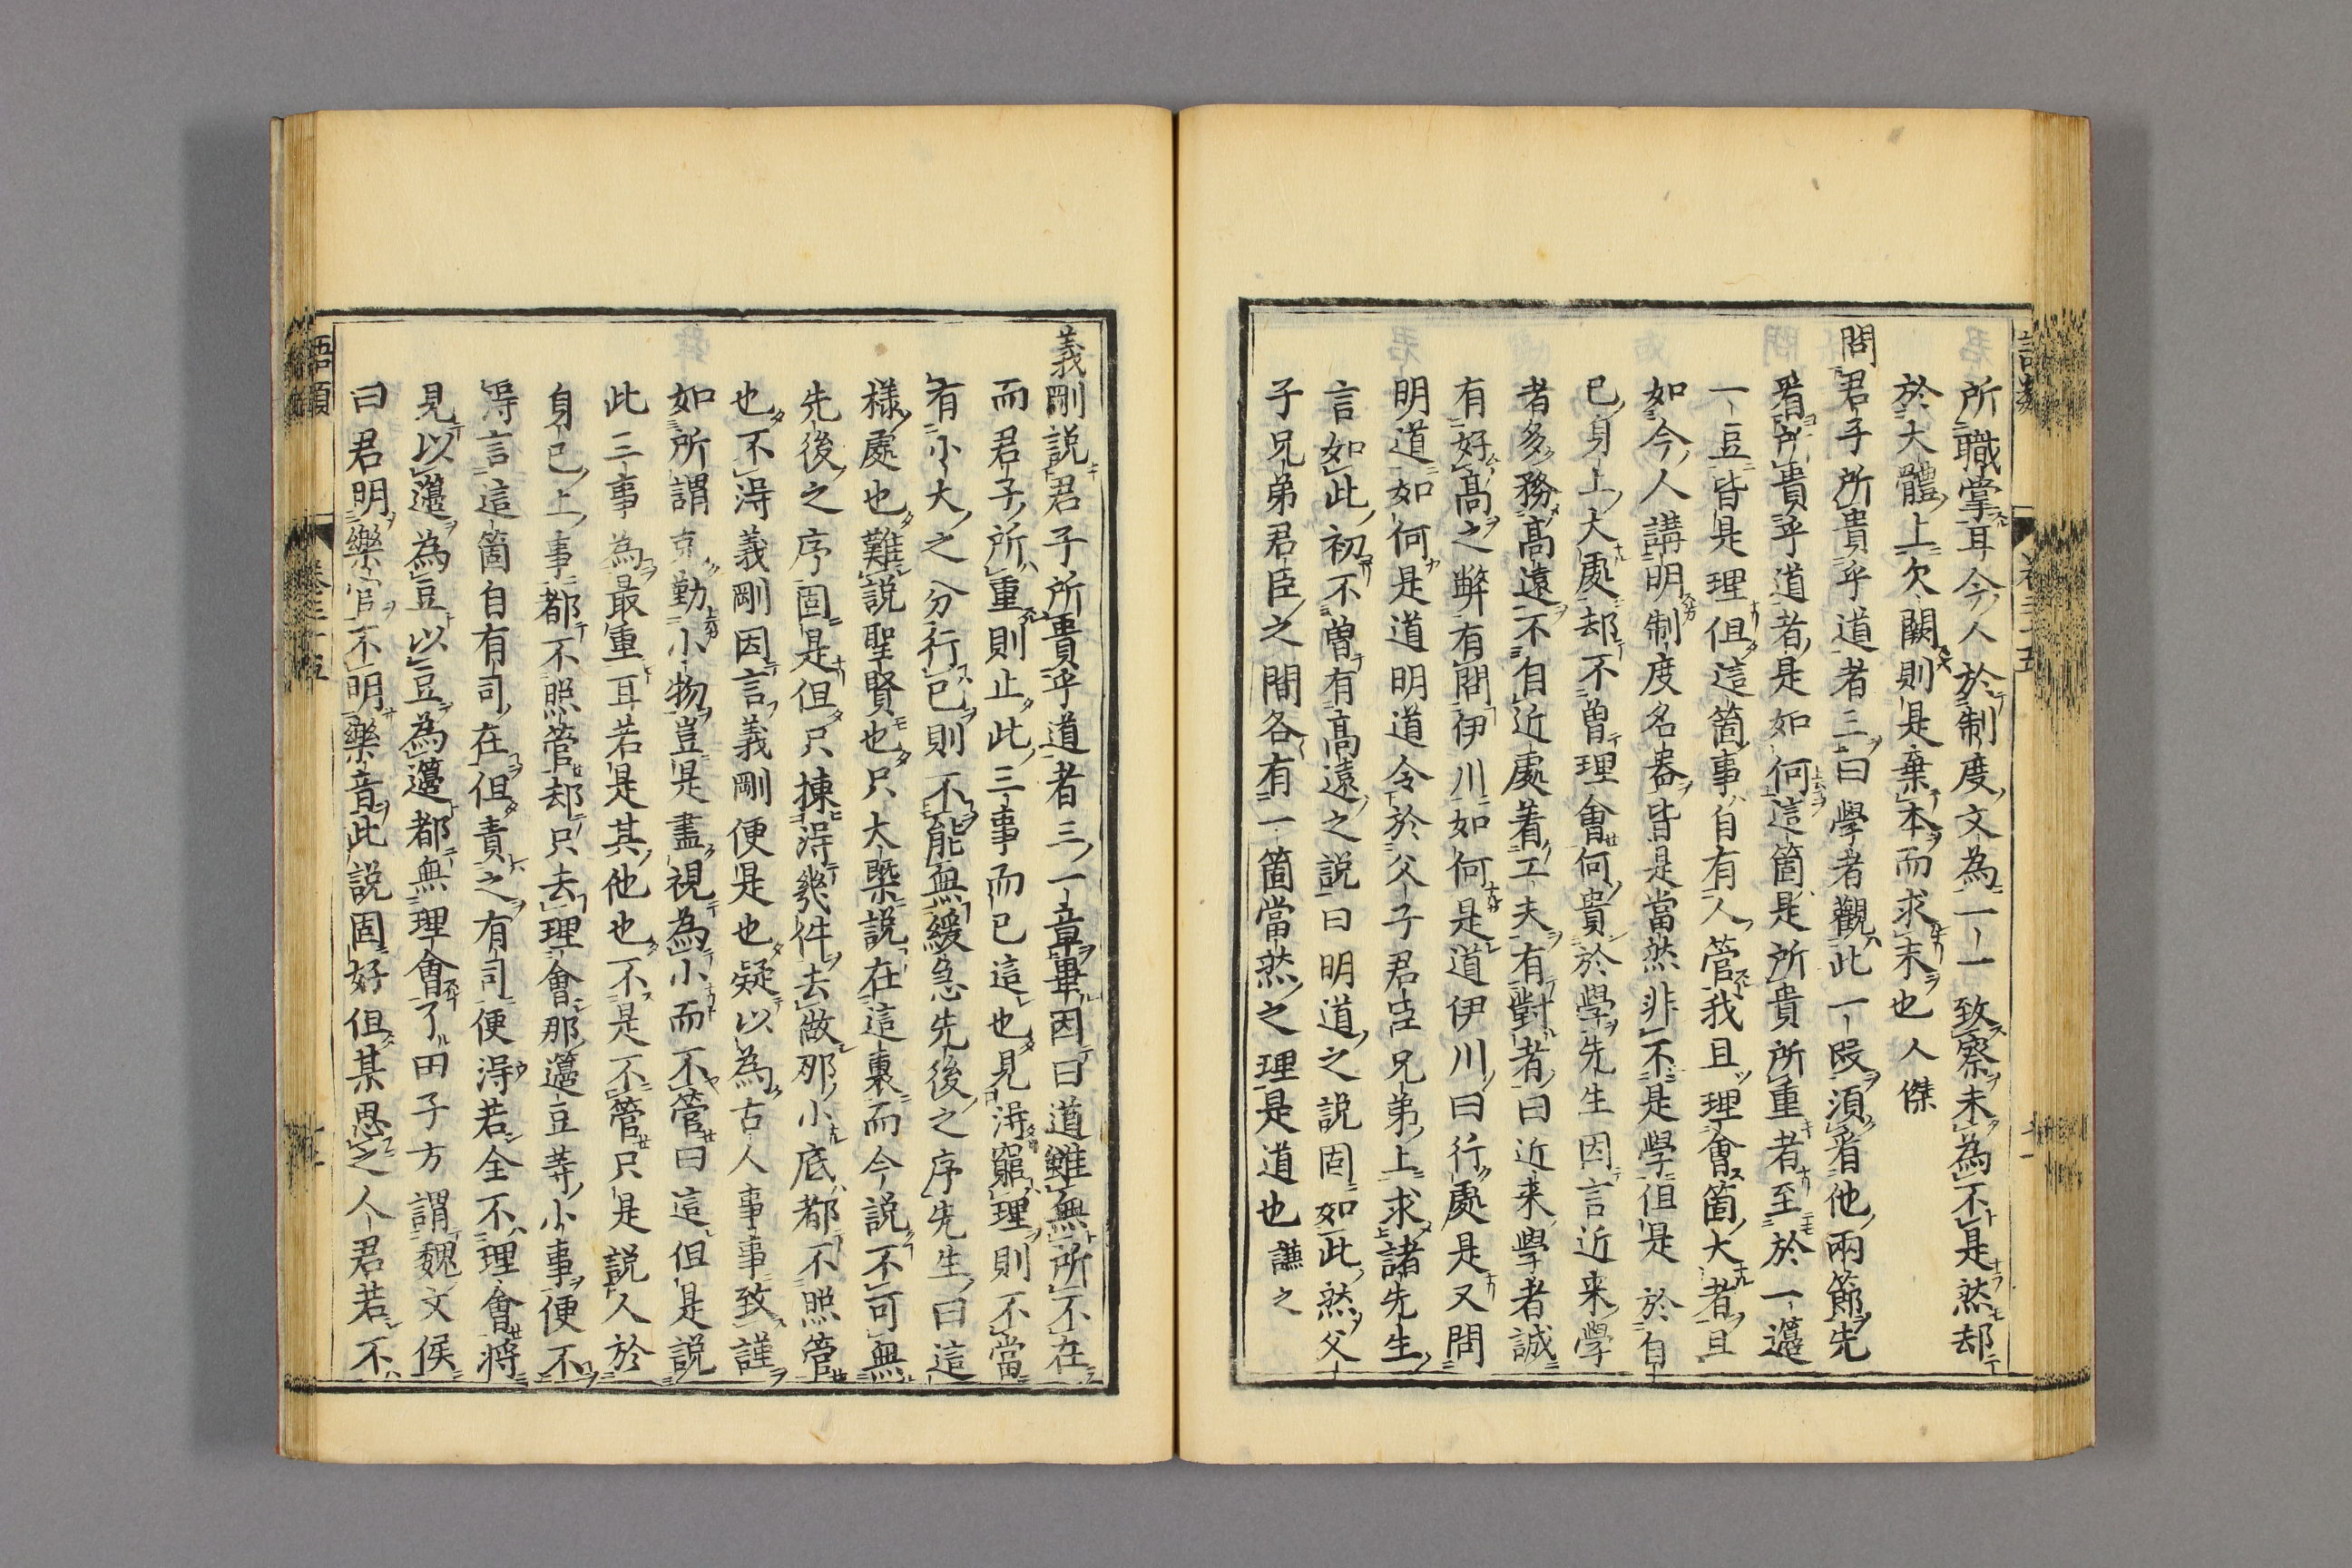 所職掌耳今人於制度文為一一致察未為不是然却
於大體上欠闕則是棄本而求末也人傑
問君子所貴乎道者三曰學者觀此一段須看他兩節先
看所貴乎道者是如何這箇是所貴所重者至於一籩
一豆皆是理但這箇事自有人管我且理會箇大者且
如今人講明制度名器皆是當然非不是學但是於自
己身上大處却不曽理會何貴於學先生因言近来學
者多務高遠不自近處着工夫有對者曰近来學者誠
有好高之弊有問伊川如何是道伊川曰行處是又問
明道如何是道明道令於父子君臣兄弟上求諸先生
言如此初不曽有高遠之説曰明道之説固如此然父
子兄弟君臣之間各有一箇當然之理是道也謙之
義剛説君子所貴乎道者三一章畢因曰道雖無所不在
而君子所重則止此三事而已這也見得窮理則不當
有小大之分行己則不能無緩急先後之序先生曰這
様處也難説聖賢也只大槩説在這裏而今説不可無
先後之序固是但只揀得幾件去做那小底都不照管
也不得義剛因言義剛便是也疑以為古人事事致謹
如所謂克勤小物豈是盡視為小而不管曰這但是説
此三事為最重耳若是其他也不是不管只是説人於
身己上事都不照管却只去理會那籩豆等小事便不
得言這箇自有司在但責之有司便得若全不理會將
見以籩為豆以豆為籩都無理會了田子方謂魏文侯
曰君明樂官不明樂音此説固好但某思之人君若不
語類
卷三十五
十一